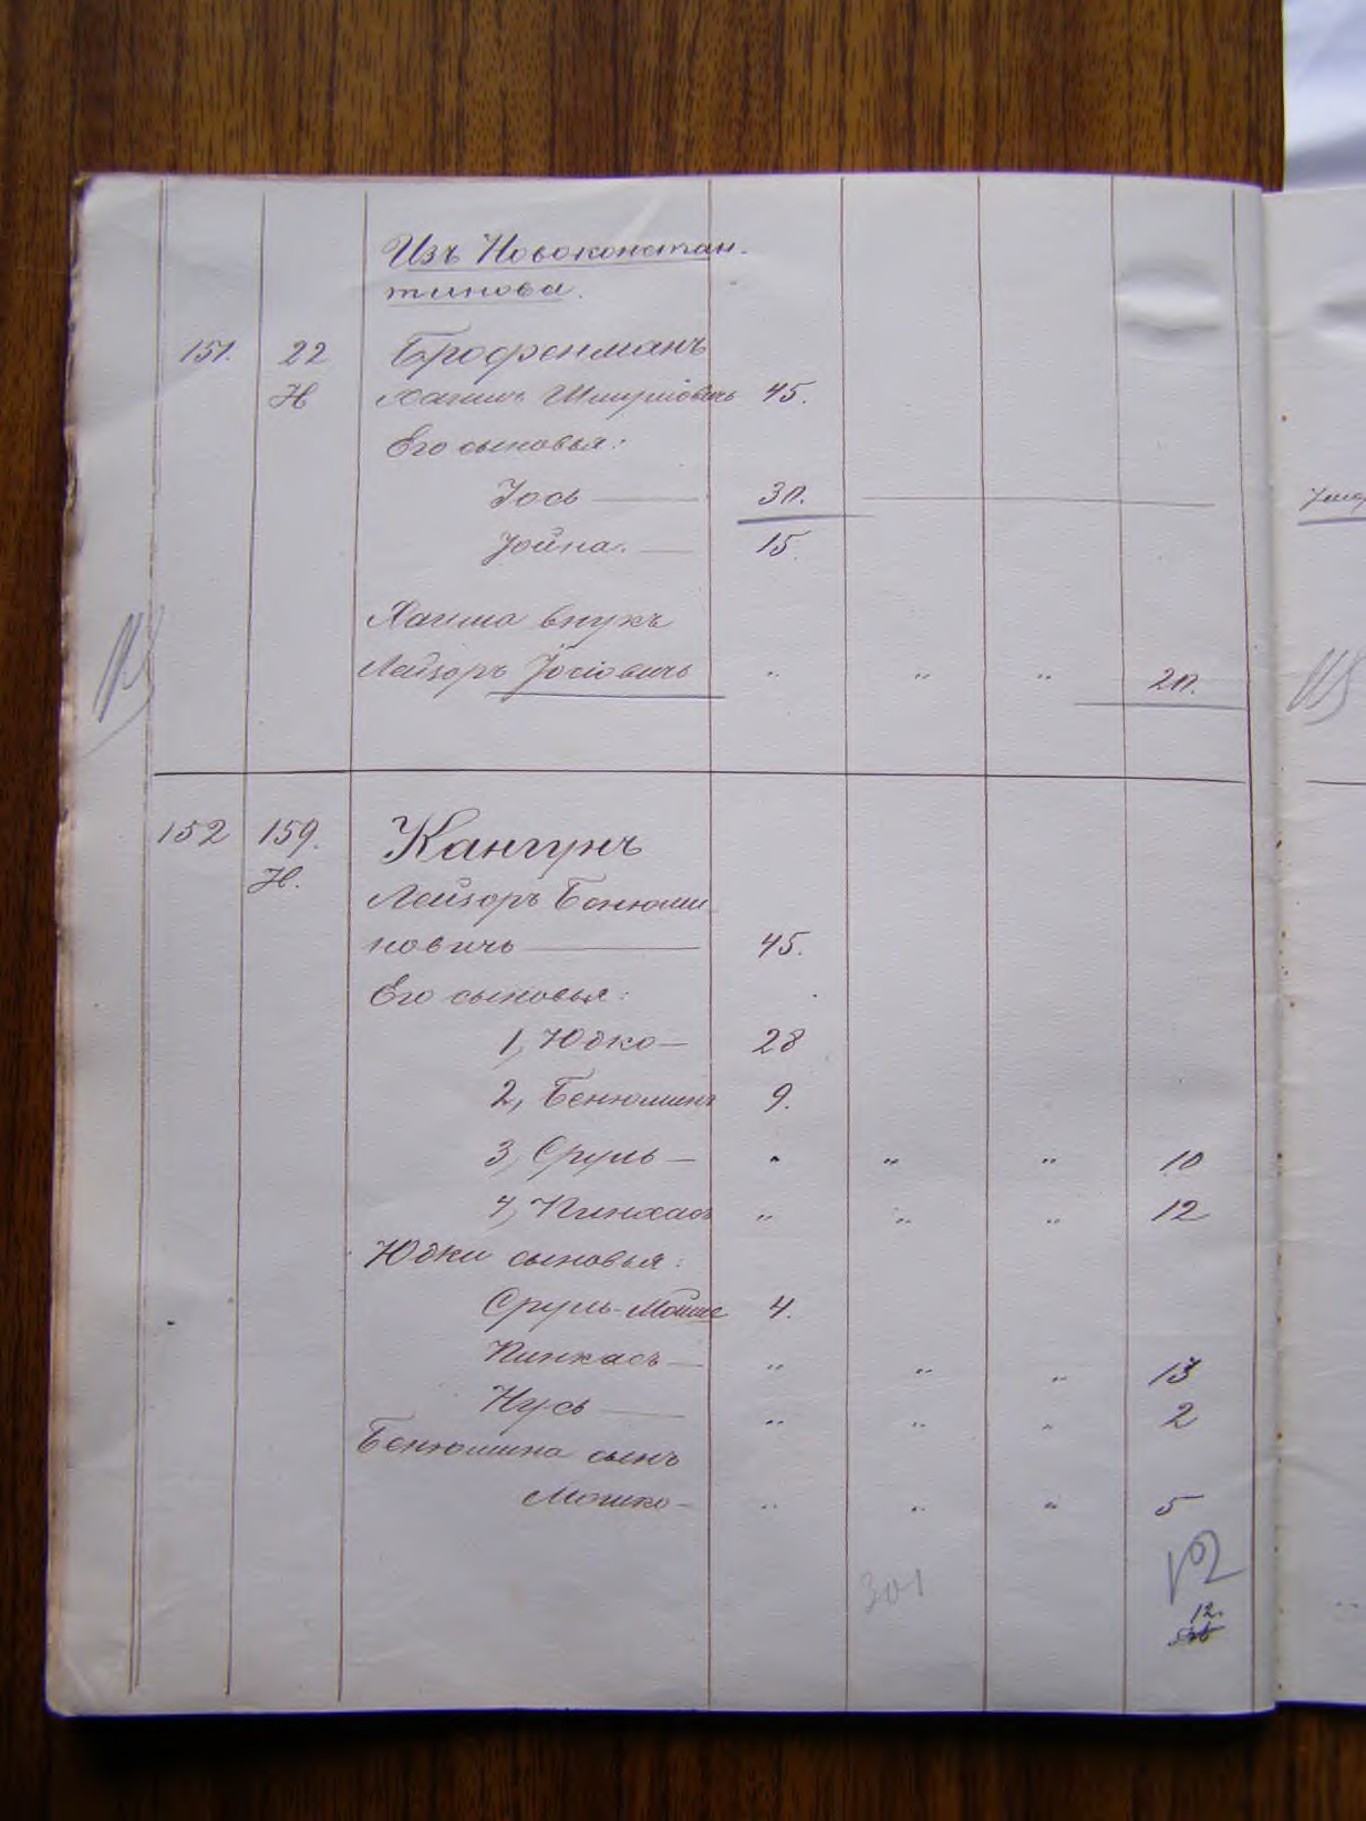 Изъ Новоконстан.
тинова.
151. 22 Брофенманъ
Н Хаимъ Шмулiовичъ 45.
Его сыновья:
Iось 30.
Iойна. 15.
Хаима внукъ
Лейзоръ Iосiовичъ " " " 20.
152 159. Кангунъ
Н. Лейзоръ Бенюми
новичъ 45.
Его сыновья:
1, Юдко 28
2, Бенюминъ 9.
3, Сруль " " " 10
4, Пинхасъ " " " 12
Юдки сыновья:
Сруль-Мойше 4.
Пинхасъ " " " 13
Нусь " " " 2
Бенюмина сынъ
Мошко " " " 5
301
12.